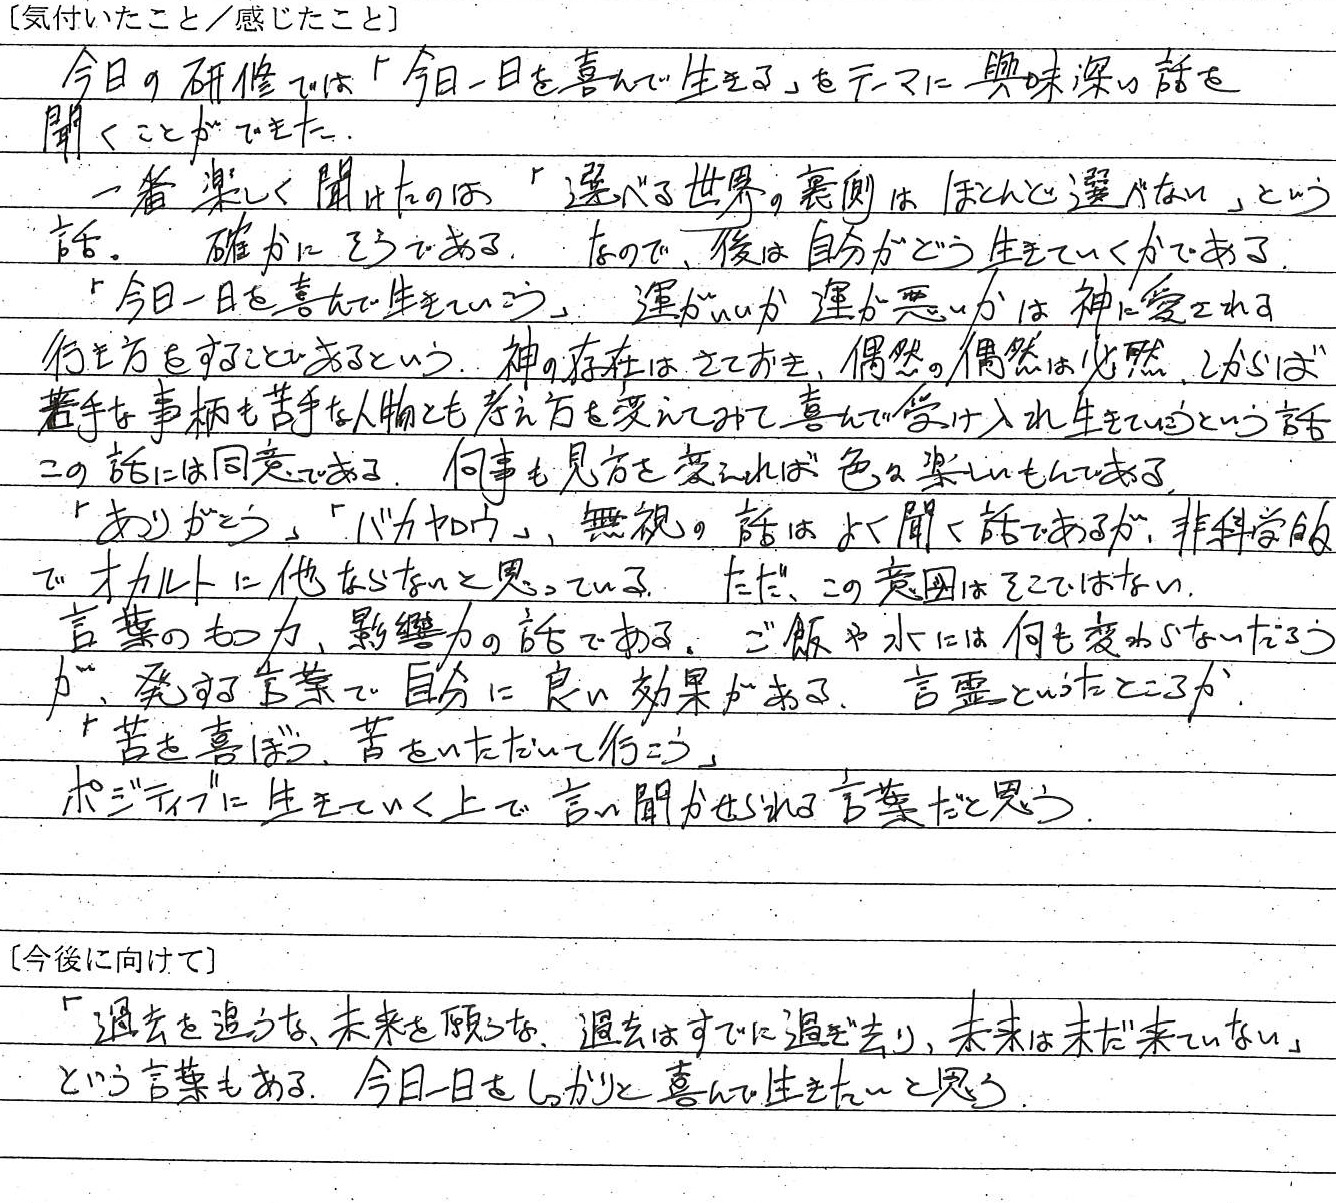 〔気付いたこと／感じたこと〕
今日の研修では「今日一日を喜んで生きる」をテーマに興味深い話を
聞くことができた.
一番楽しく聞けたのは「選べる世界の裏側はほとんど選べない」という
話。 確かにそうである. なので、後は自分がどう生きていくかである.
「今日一日を喜んで生きていこう」. 運がいいか運が悪いかは神に愛される
行き方をすることであるという. 神の存在はさておき、偶然の偶然は必然、しからば
苦手な事柄も苦手な人物とも考え方を変えてみて喜んで受け入れ生きていこうという話
この話には同意である. 何事も見方を変えれば色々楽しいもんである.
「ありがとう」「バカヤロウ」、無視の話はよく聞く話であるが、非科学的
でオカルトに他ならないと思っている. ただ、この意図はそこではない.
言葉のもつ力、影響力の話である. ご飯や水には何も変わらないだろう
が、発する言葉で自分に良い効果がある. 言霊といったところか.
「苦を喜ぼう、苦をいただいて行こう」
ポジティブに生きていく上で言い聞かせられる言葉だと思う.
〔今後に向けて〕
「過去を追うな、未来を願うな. 過去はすでに過ぎ去り、未来は未だ来ていない」
という言葉もある. 今日一日をしっかりと喜んで生きたいと思う.